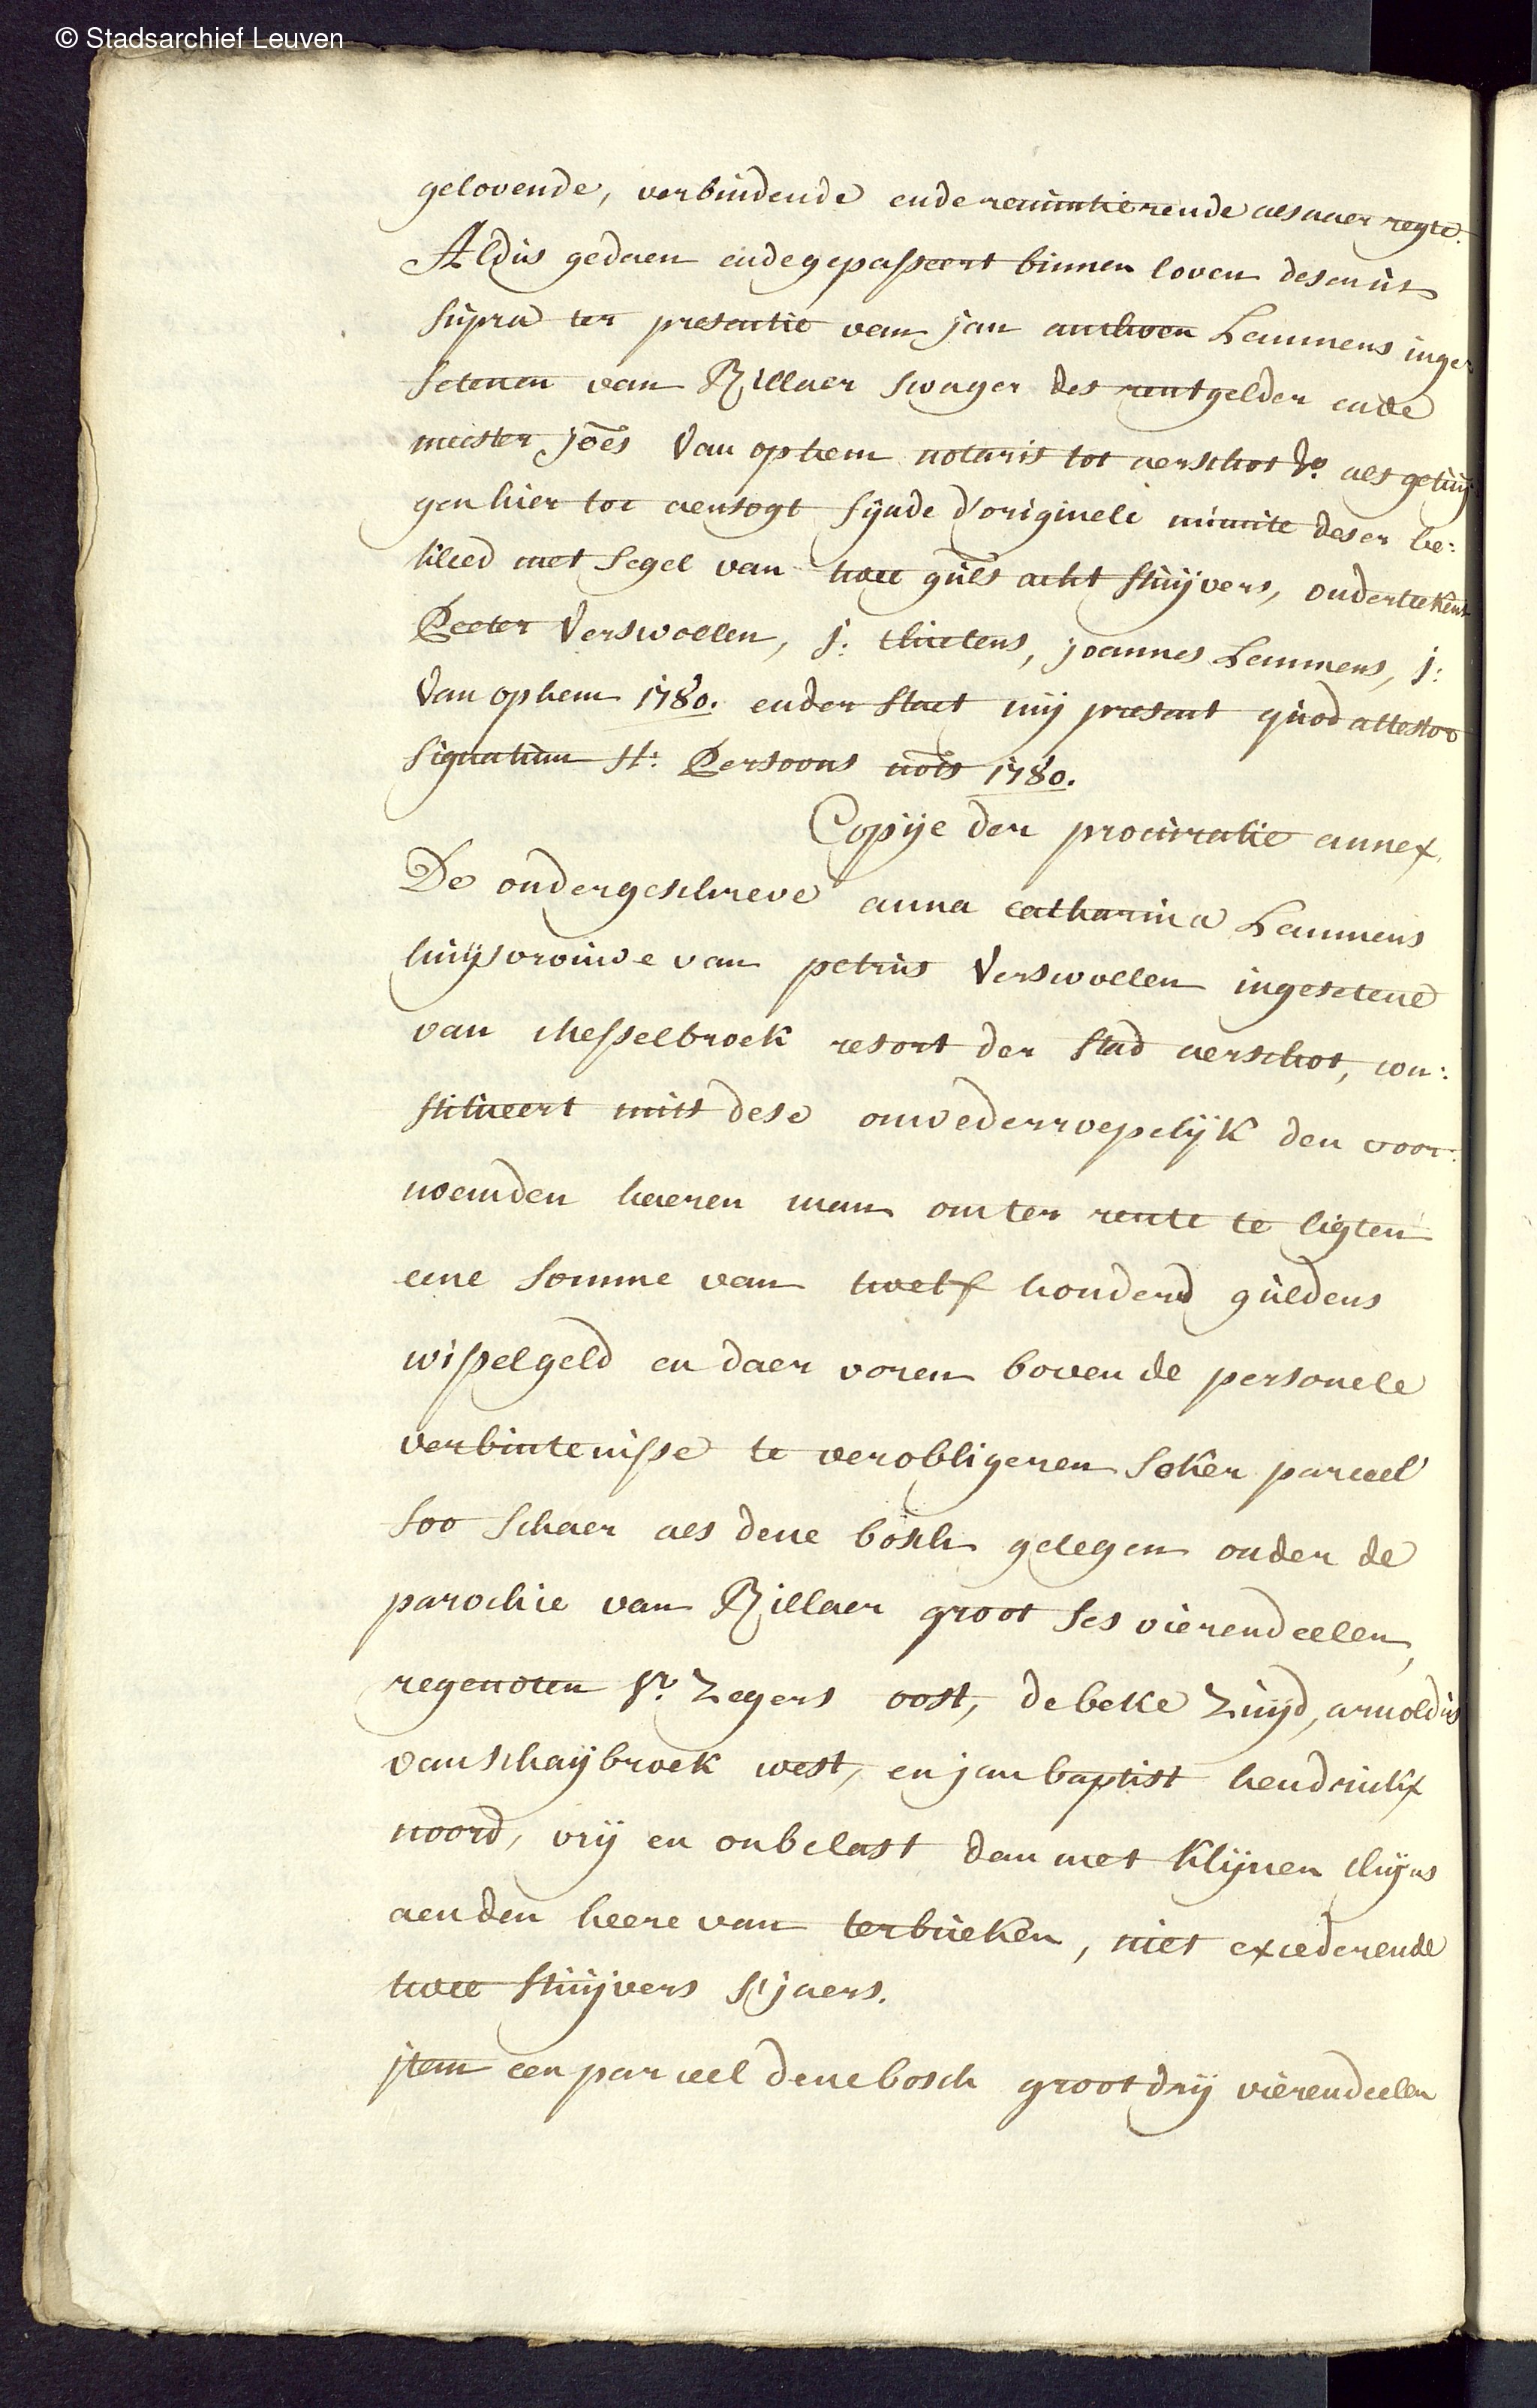 © Stadsarchief Leuven
gelovende, verbindende ende renuntierende als naer regte.
Aldus gedaen ende gepasseert binnen loven desen ut
supra ter presentie van jan anthoen Lemmens inge:
setenen van Rillaer swager des rentgelder ende
meester joēs Van ophem notaris tot aerschot als getuij
gen hier toe aensogt sijnde d'originele minute deser be:
kleed met segel van twee guls acht stuijvers, onderteekent
Peeter Verswoelen, j: thielens, joannes Lemmens, j:
Van ophem 1780. ender staet mij present quod attestor
signatum H: Persoons nots 1780.
Copije der procuratie annex.
De ondergeschreve anna catharina Lemmens
huijsvrouwe van petrus Verswoelen ingesetene
van Messelbroek resort der stad aerschot, con:
stitueert mits dese onwederroepelijk den voor:
noemden haeren man om ter rente te ligten
eene somme van twelf honderd guldens
wisselgeld en daer voren boven de personele
verbintenisse te verobligeren seker parceel
soo schaer als dene bosch gelegen onder de
parochie van Rillaer groot ses vierendeelen,
regenoten Sr. Zegers oost, de beke Zuijd, arnoldus
van schaijbroek west, en jan baptist hendrickx
noord, vrij en onbelast dan met klijnen chijns
aen den heere van terbueken, niet excederende
twee stuijvers s'jaers.
jtem een parceel dene bosch groot drij vierendeelen